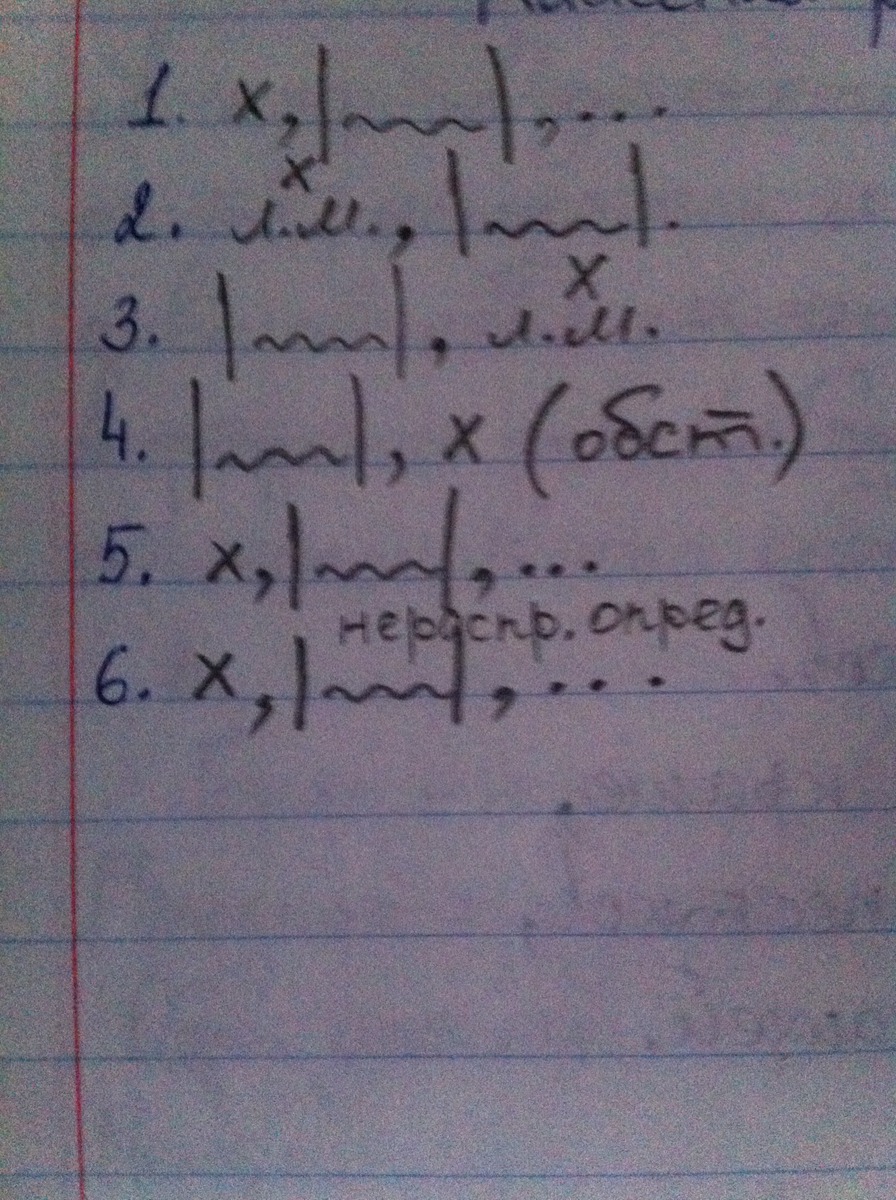 1. х, |~~~|, ...
х
2. л.м., |~~~|.
х
3. |~~~|, л.м.
4. |~~~|, х (обст.)
5. х, |~~~|, ...
нераспр. опред.
6. х, |~~~|, ...